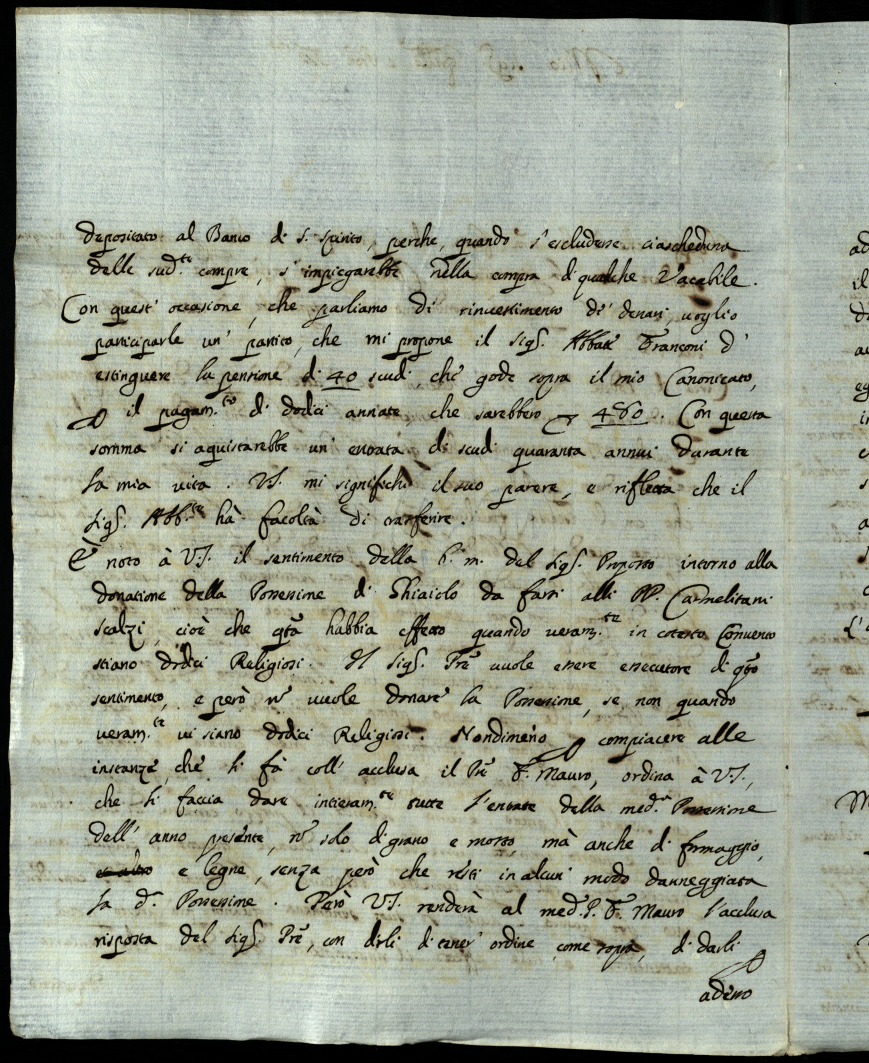 depositato al Banco di S. Spirito, perche, quando s'escludesse ciascheduna
delle sud.te compre, s'impiegarebbe nella compra di qualche Vacabile.
Con quest' occasione, che parliamo di rinvestimento di denari, voglio
participarle un' partito, che mi propone il Sig.r Abbate Franconi d'
estinguere la pensione di 40 scudi, che gode sopra il mio Canonicato,
p il pagam.to di dodici annate, che sarebbero 480. Con questa
somma si aquistarebbe un' entrata di scudi quaranta annui durante
la mia vita. VS. mi significhi il suo parere, e rifletta che il
Sig.r Abb.te hà facoltà di trasferire.
È noto à VS. il sentimento della b. m. del Sig.r Proposto intorno alla
donatione della Possessione di Ghiaiolo da farsi alli PP. Carmelitani
scalzi, cioè che qta habbia effetto quando veram.te in cotesto Convento
stiano dodici Religiosi. Il Sig.r Pre vuole essere essecutore di qto
sentimento, e però nō vuole donare la Possessione, se non quando
veram.te vi siano dodici Religiosi. Nondimeno p compiacere alle
instanze, che li fà coll' acclusa il Pre F. Mauro, ordina à VS.,
che li faccia dare intieram.te tutte l'entrate della med.a Possessione
dell' anno presente, nō solo di grano e mosto, mà anche di formaggio,
e legne, senza però che resti in alcun' modo danneggiata
la d.a Possessione. Però VS. renderà al med. P. F. Mauro l'acclusa
risposta del Sig.r Pre, con dirli di tener' ordine, come sopra, di darli
p
adesso